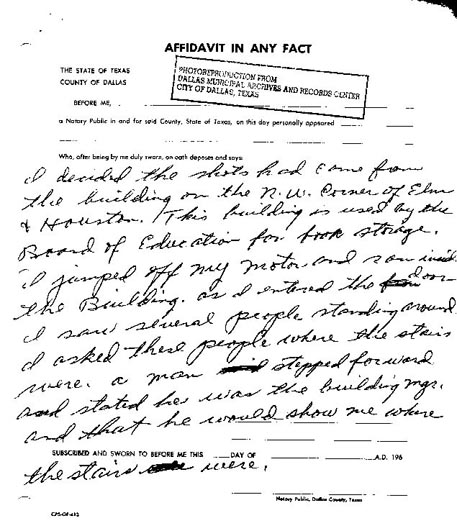 AFFIDAVIT IN ANY FACT
THE STATE OF TEXAS
COUNTY OF DALLAS
PHOTOREPRODUCTION FROM
DALLAS MUNICIPAL ARCHIVES AND RECORDS CENTER
CITY OF DALLAS, TEXAS
BEFORE ME,
a Notary Public in and for said County, State of Texas, on this day personally appeared
Who, after being by me duly sworn, on oath deposes and says:
I decided the shots had come from
the building on the N.W. Corner of Elm
& Houston. This building is used by the
Board of Education for book storage.
I jumped off my motor and ran inside
the Building. as I entered the door
I saw several people standing around
I asked these people where the stairs
were. a man stepped forward
and stated he was the building mgr.
and that he would show me where
SUBSCRIBED AND SWORN TO BEFORE ME THIS DAY OF A.D. 196
the stairs were.
Notary Public, Dallas County, Texas
CPS-GF-413